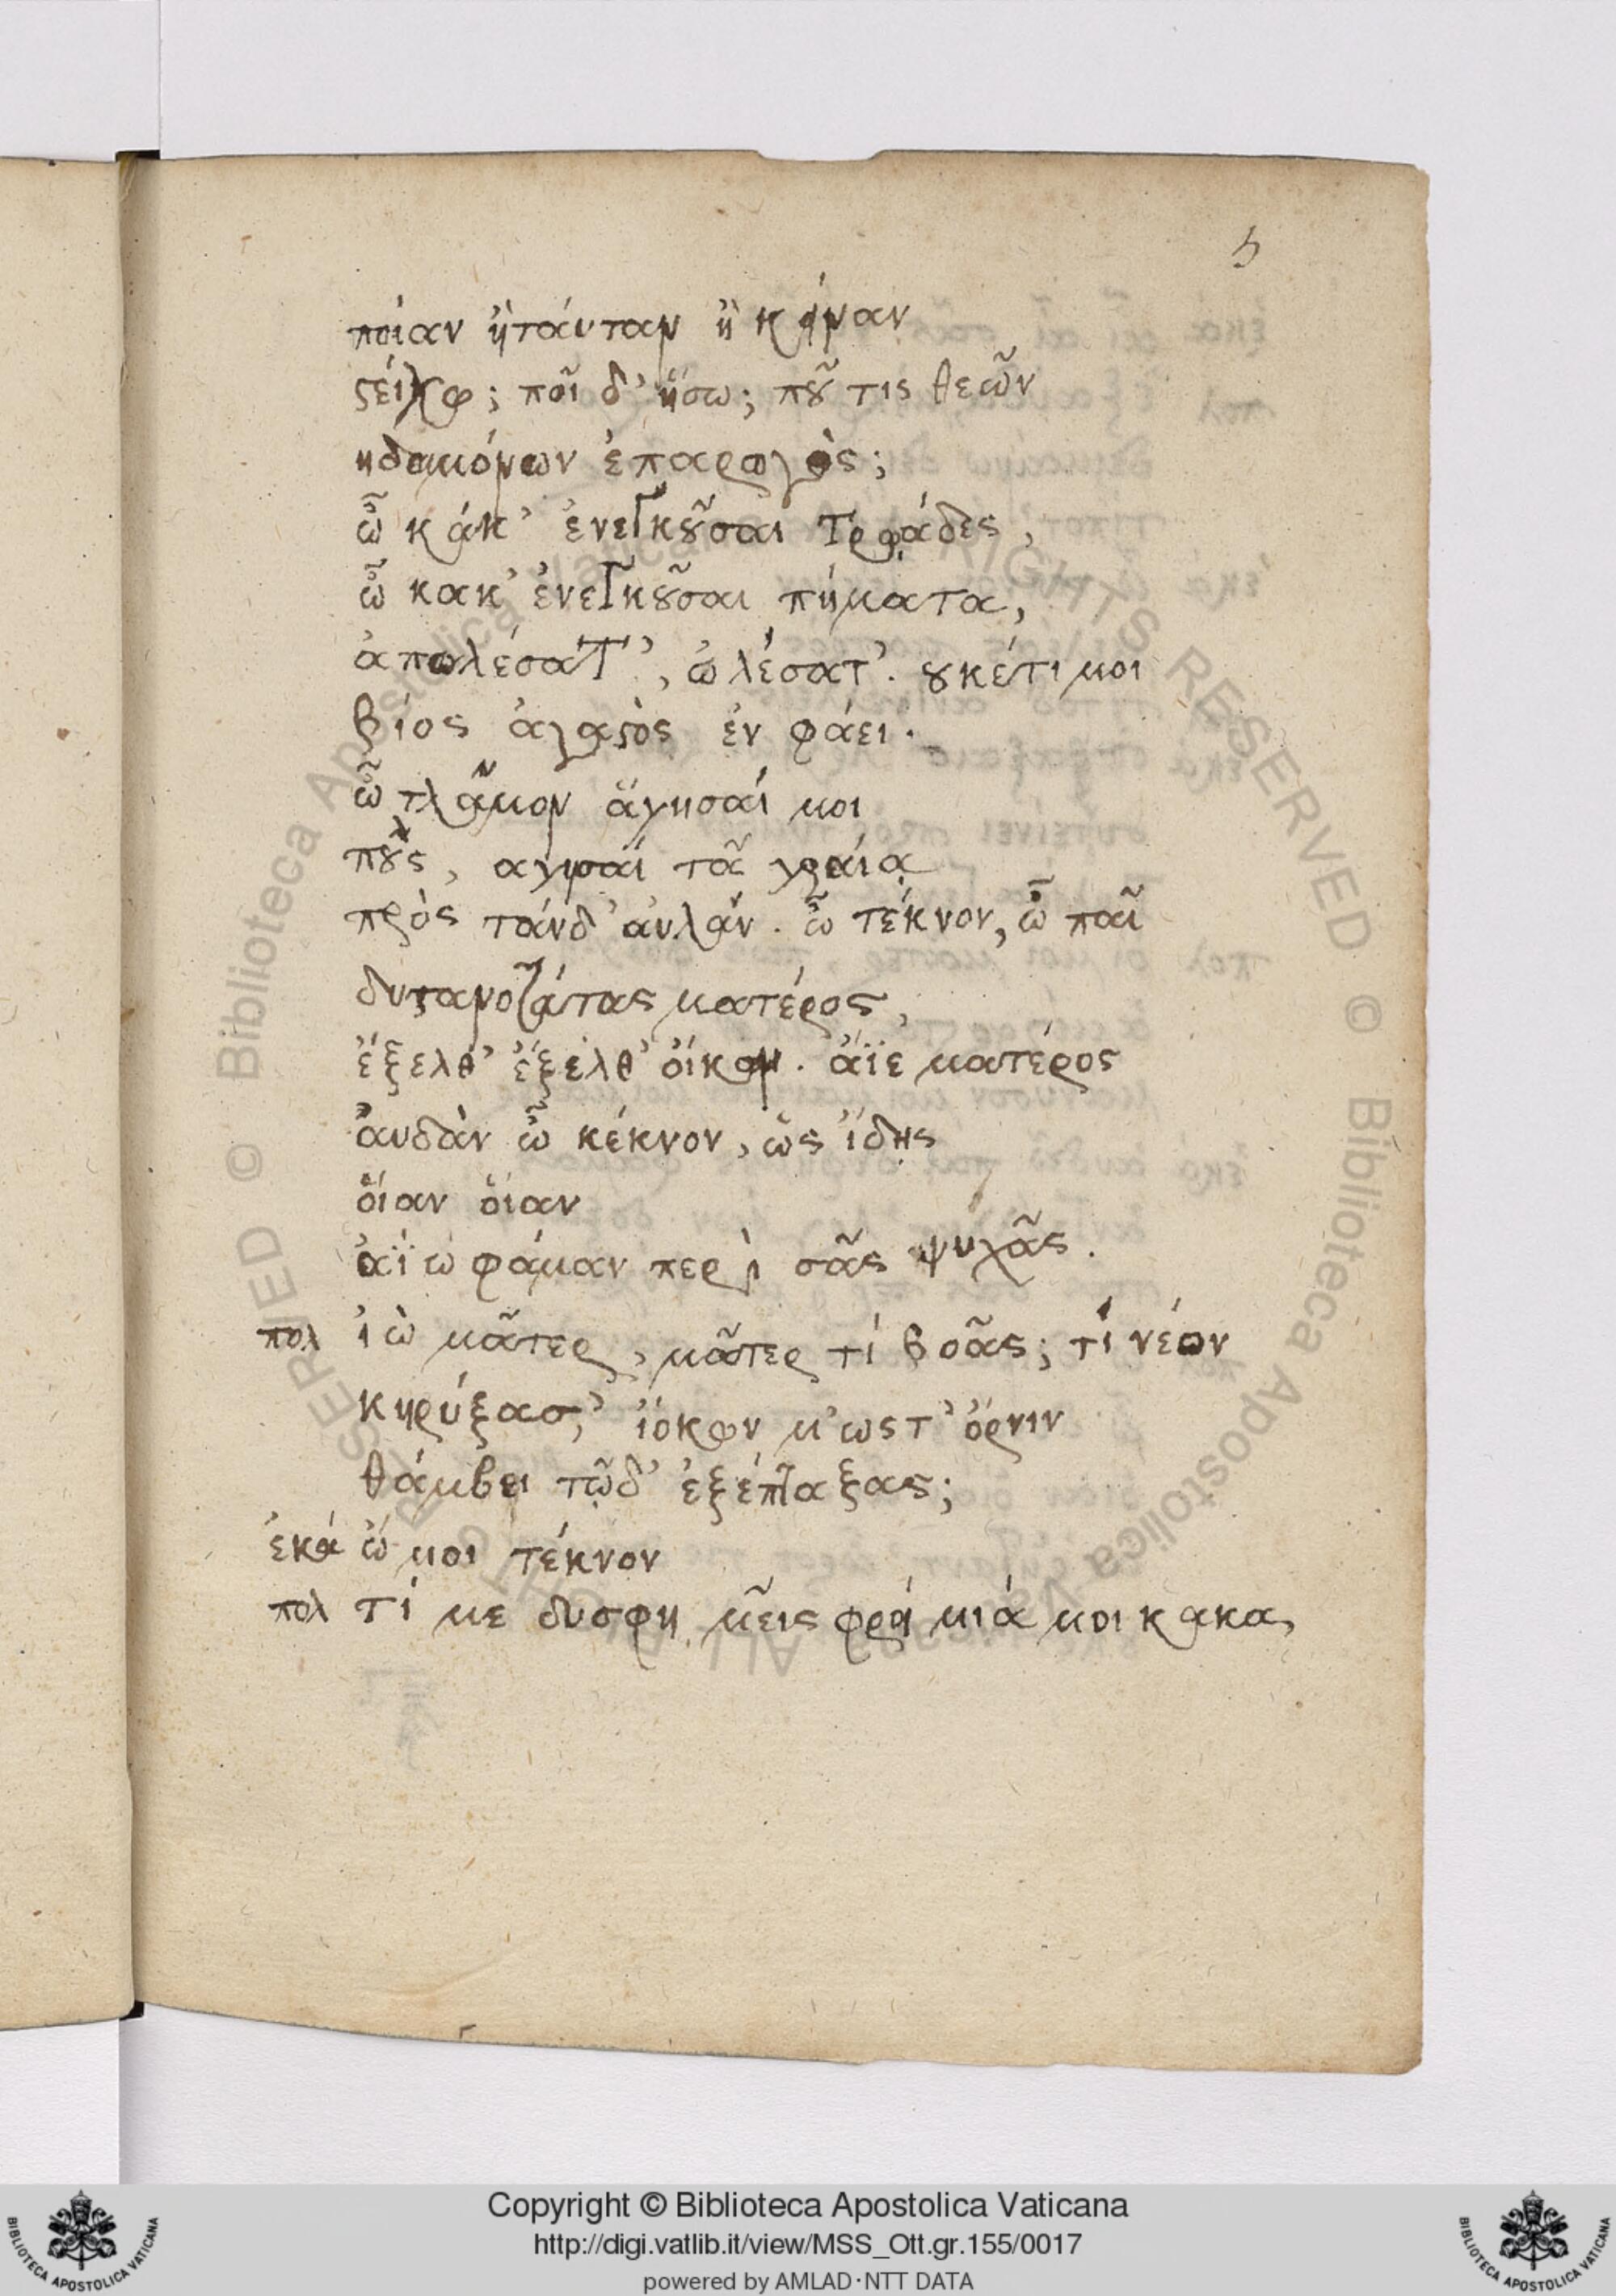 5
ποίαν ἢ ταύταν ἢ κήναν
ϛείχω; ποῖ δ' ἥσω; πȣ͂ τις θεῶν
ἢ δαιμόνων ἐπαρωγὸς;
ὦ κάκ' ἐνεγκȣ͂σαι Τρῳάδες,
ὦ κακ' ἐνεγκȣ͂σαι πήματα,
ἀπωλέσατ', ὠλέσατ'. ȣκέτι μοι
βίος ἀγαϛὸς ἐν φάει.
ὦ τλᾶμον ἅγησαί μοι
πȣ͂ς, αγησαί τᾶ γραίᾳ
πρὸς τάνδ' ἀυλάν. ὦ τέκνον, ὦ παῖ
δυϛανοτάτας ματέρος,
ἔξελθ' ἔξελθ' ὄικων. ἄϊε ματέρος
ἀυδὰν ὦ κέκνον, ὡς ἴδῃς
ὅιαν ὅιαν
ἀΐω φάμαν περὶ σᾶς ψυχᾶς.
πολ ἰὼ μᾶτερ, μᾶτερ τί βοᾶς; τί νέον
κηρύξασ,' ὄικων μ' ωςτ' ὄρνιν
θάμβει τῷδ' ἐξέπταξας;
ἑκά ὤ μοι τέκνον
πολ τί με δυσφημεῖς φρόιμιά μοι κακα,
Copyright © Biblioteca Apostolica Vaticana
http://digi.vatlib.it/view/MSS_Ott.gr.155/0017
powered by AMLAD·NTT DATA
BIBLIOTECA APOSTOLICA VATICANA
BIBLIOTECA APOSTOLICA VATICANA
© Biblioteca Apostolica Vaticana ALL RIGHTS RESERVED